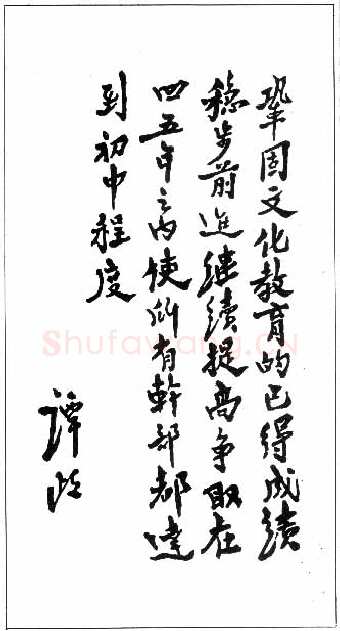 巩固文化教育的已得成績
穩步前進继续提高争取在
四五年之内使所有幹部都達
到初中程度
譚政
Shufawang.CN